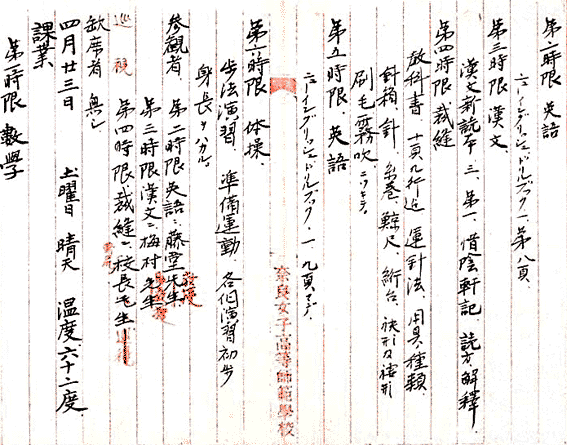 第二時限 英語
ニューイングリッシュドリルブック一、第八頁、
第三時限、漢文、
漢文新読本 三、第一、借陰軒記、読方解釋、
第四時限 裁縫
教科書 十頁九行迄 運針法、用具、種類、
針箱、針、糸巻、鯨尺、絎台、袂形及袖形
刷毛霧吹ニツキテ、
第五時限、英語
ニューイングリッシュドリルブック、一、九頁マデ、
奈良女子高等師範學校
第六時限 体操、
歩法演習、準備運動、各個演習初歩
身長ヲハカル。
参観者 第二時限英語ニ藤堂先生、
第三時限漢文ニ梅村先生
第四時限、裁縫ニ、校長先生
巡視
缺席者 無し
四月廿三日 土曜日 晴天 温度六十二度、
課業
第一時限 數學